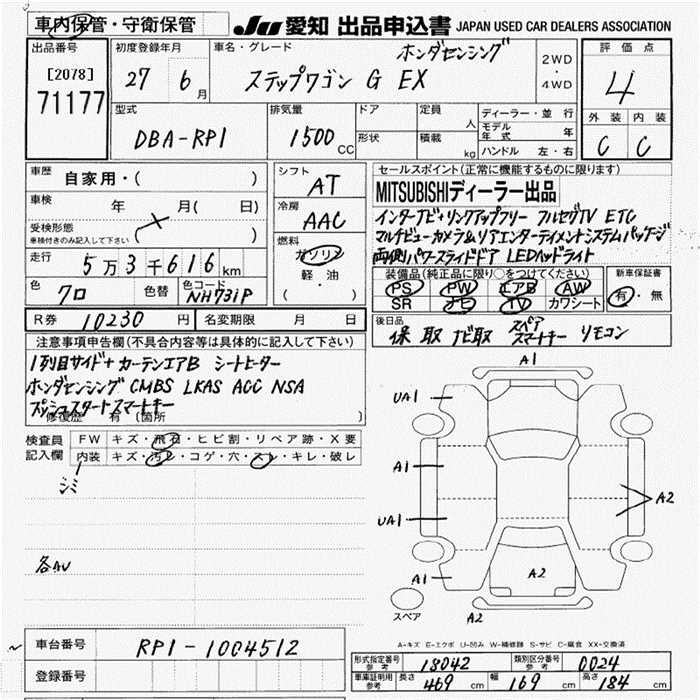 車内保管・守衛保管
JU 愛知 出品申込書 JAPAN USED CAR DEALERS ASSOCIATION
出品番号
[2078]
71177
初度登録年月
27 6月
車名・グレード
ホンダセンシング
ステップワゴン G EX
2WD
・
4WD
評価点
4
外装 内装
C C
型式
DBA-RP1
排気量
1500 CC
ドア
形状
定員 人
積載 kg
ディーラー・並行
モデル年式 年
ハンドル 左・右
車歴 自家用・( )
車検 年 月( 日)
受検形態
車検付きのみ記入して下さい ( )
走行 5万3千616km
色 クロ 色替 色コード NH731P
シフト
AT
冷房
AAC
燃料
ガソリン
軽・油
( )
セールスポイント(正常に機能するものに限ります)
MITSUBISHIディーラー出品
インターナビ+リンクアップフリー フルセグTV ETC
マルチビューカメラ&リアエンターテイメントシステムパッケージ
両側パワースライドドア LEDヘッドライト
装備品(純正品に限り○をつけてください)
PS PW エアB AW
SR ナビ TV カワシート
新車保証書
有・無
R券 10230円 名変期限 月 日
後日品
保 取 ナビ取 スペアスマートキー リモコン
注意事項申告欄(不具合内容等は具体的に記入して下さい)
1列目サイド+カーテンエアB シートヒーター
ホンダセンシング CMBS LKAS ACC NSA
プッシュスタートスマートキー
修復歴 有(箇所 )
検査員記入欄
FW キズ・飛石・ヒビ割・リペア跡・X要
内装 キズ・汚レ・コゲ・穴・スレ・キレ・破レ
シミ
A1
UA1
A1
UA1
A2
A2
A1
A2
スペア
A-キズ E-エクボ U-凹み W-補修跡 S-サビ C-腐食 XX-交換済
車台番号 RP1-1004512
登録番号
形式指定番号 参考 18042 類別区分番号 参考 0024
車庫証明用 参考 長さ 469cm 幅 169cm 高さ 184cm